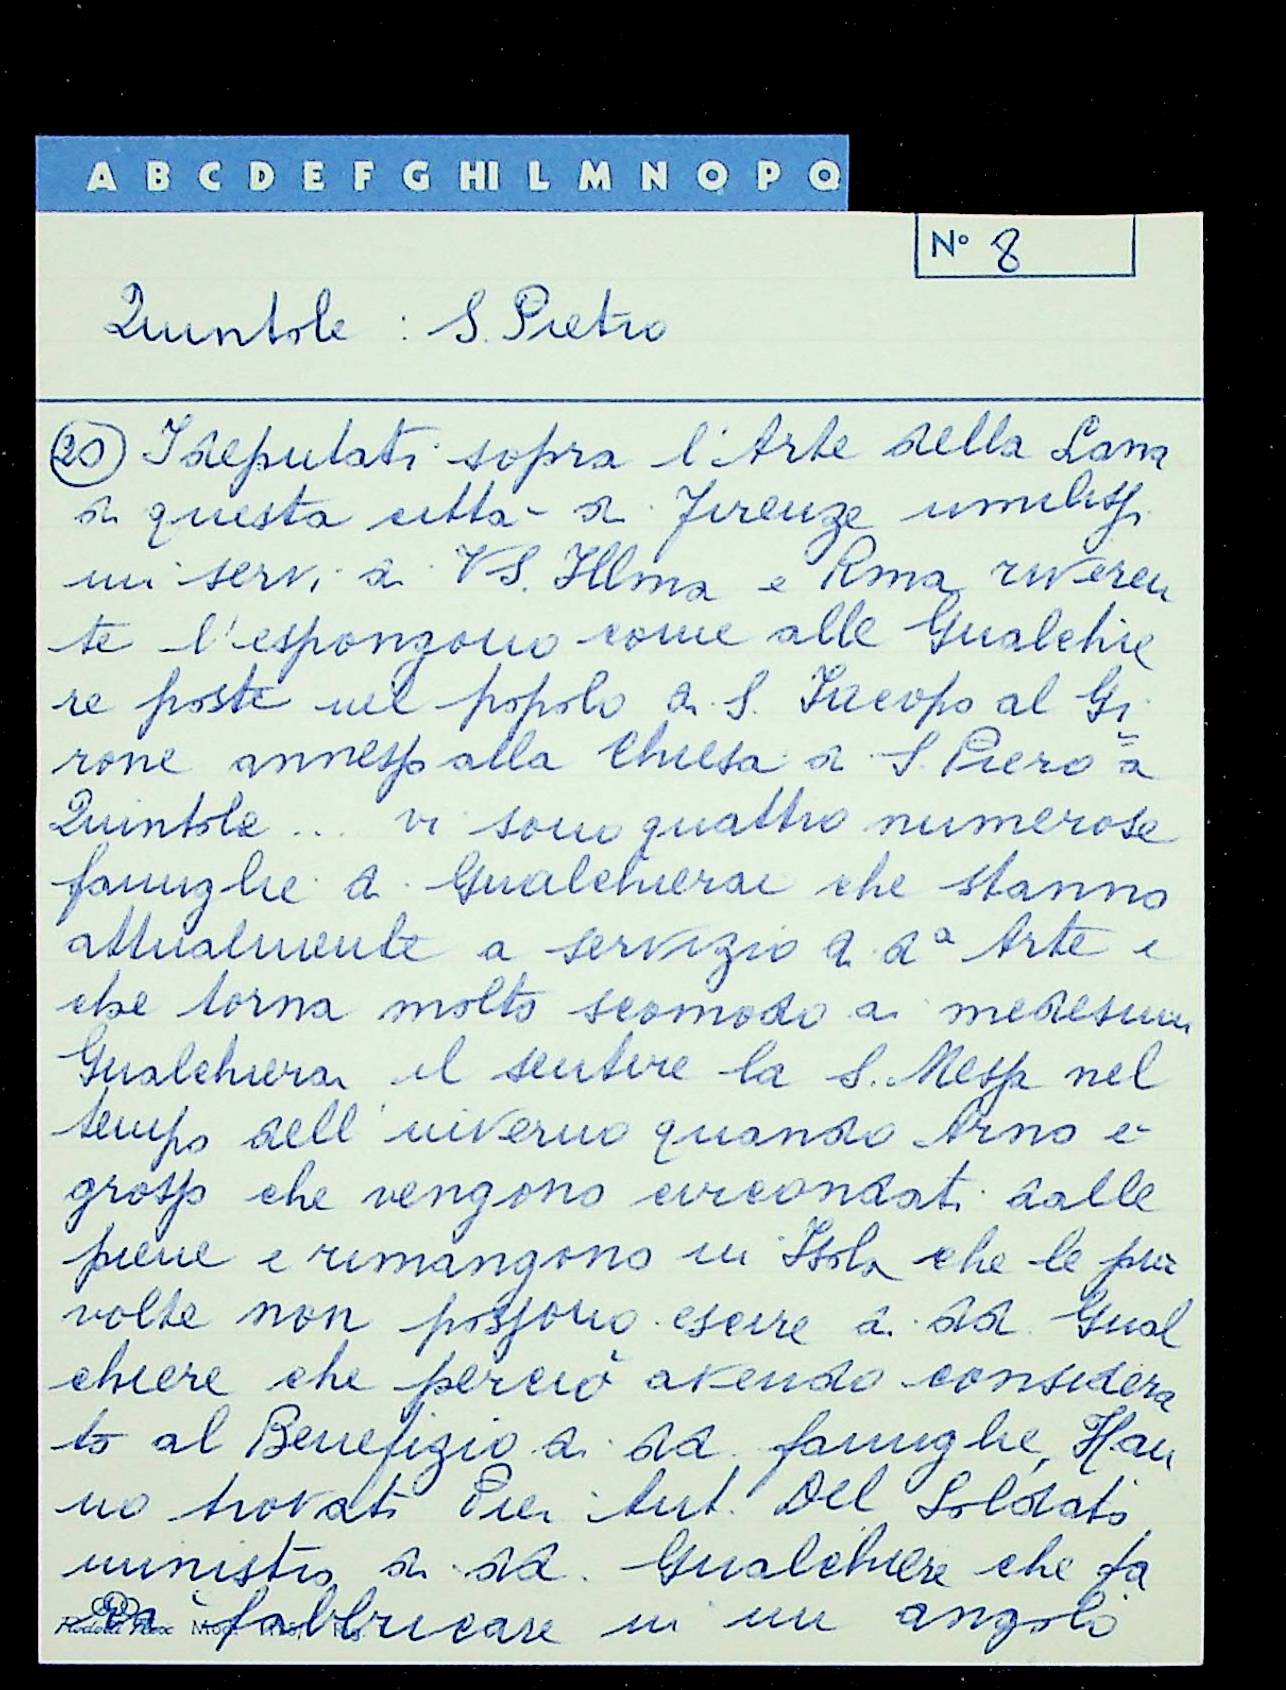 A B C D E F G HI L M N O P Q
N° 8
Quintole : S. Pietro
20 I deputati sopra l'Arte della Lana
di questa città di Firenze umiliss
mi servi di VS. Illma e Rma riveren
te l'espongono come alle Gualchie
re poste nel popolo di S. Iacopo al Gi
rone annesso alla Chiesa di S. Piero a
Quintole ... vi sono quattro numerose
famiglie di Gualchierai che stanno
attualmente a servizio di da Arte e
che torna molto scomodo ai medesimi
Gualchierai il sentire la S. Messa nel
tempo dell'inverno quando Arno è
grosso che vengono circondati dalle
piene e rimangono in Isola che le più
volte non possono escire di dd. Gual
chiere che perciò avendo considera
to al Benefizio di dd. famiglie, Han
no trovati Pier Ant. Del Soldato
ministro di dd. Gualchiere che fa
rà fabbricare in un angolo